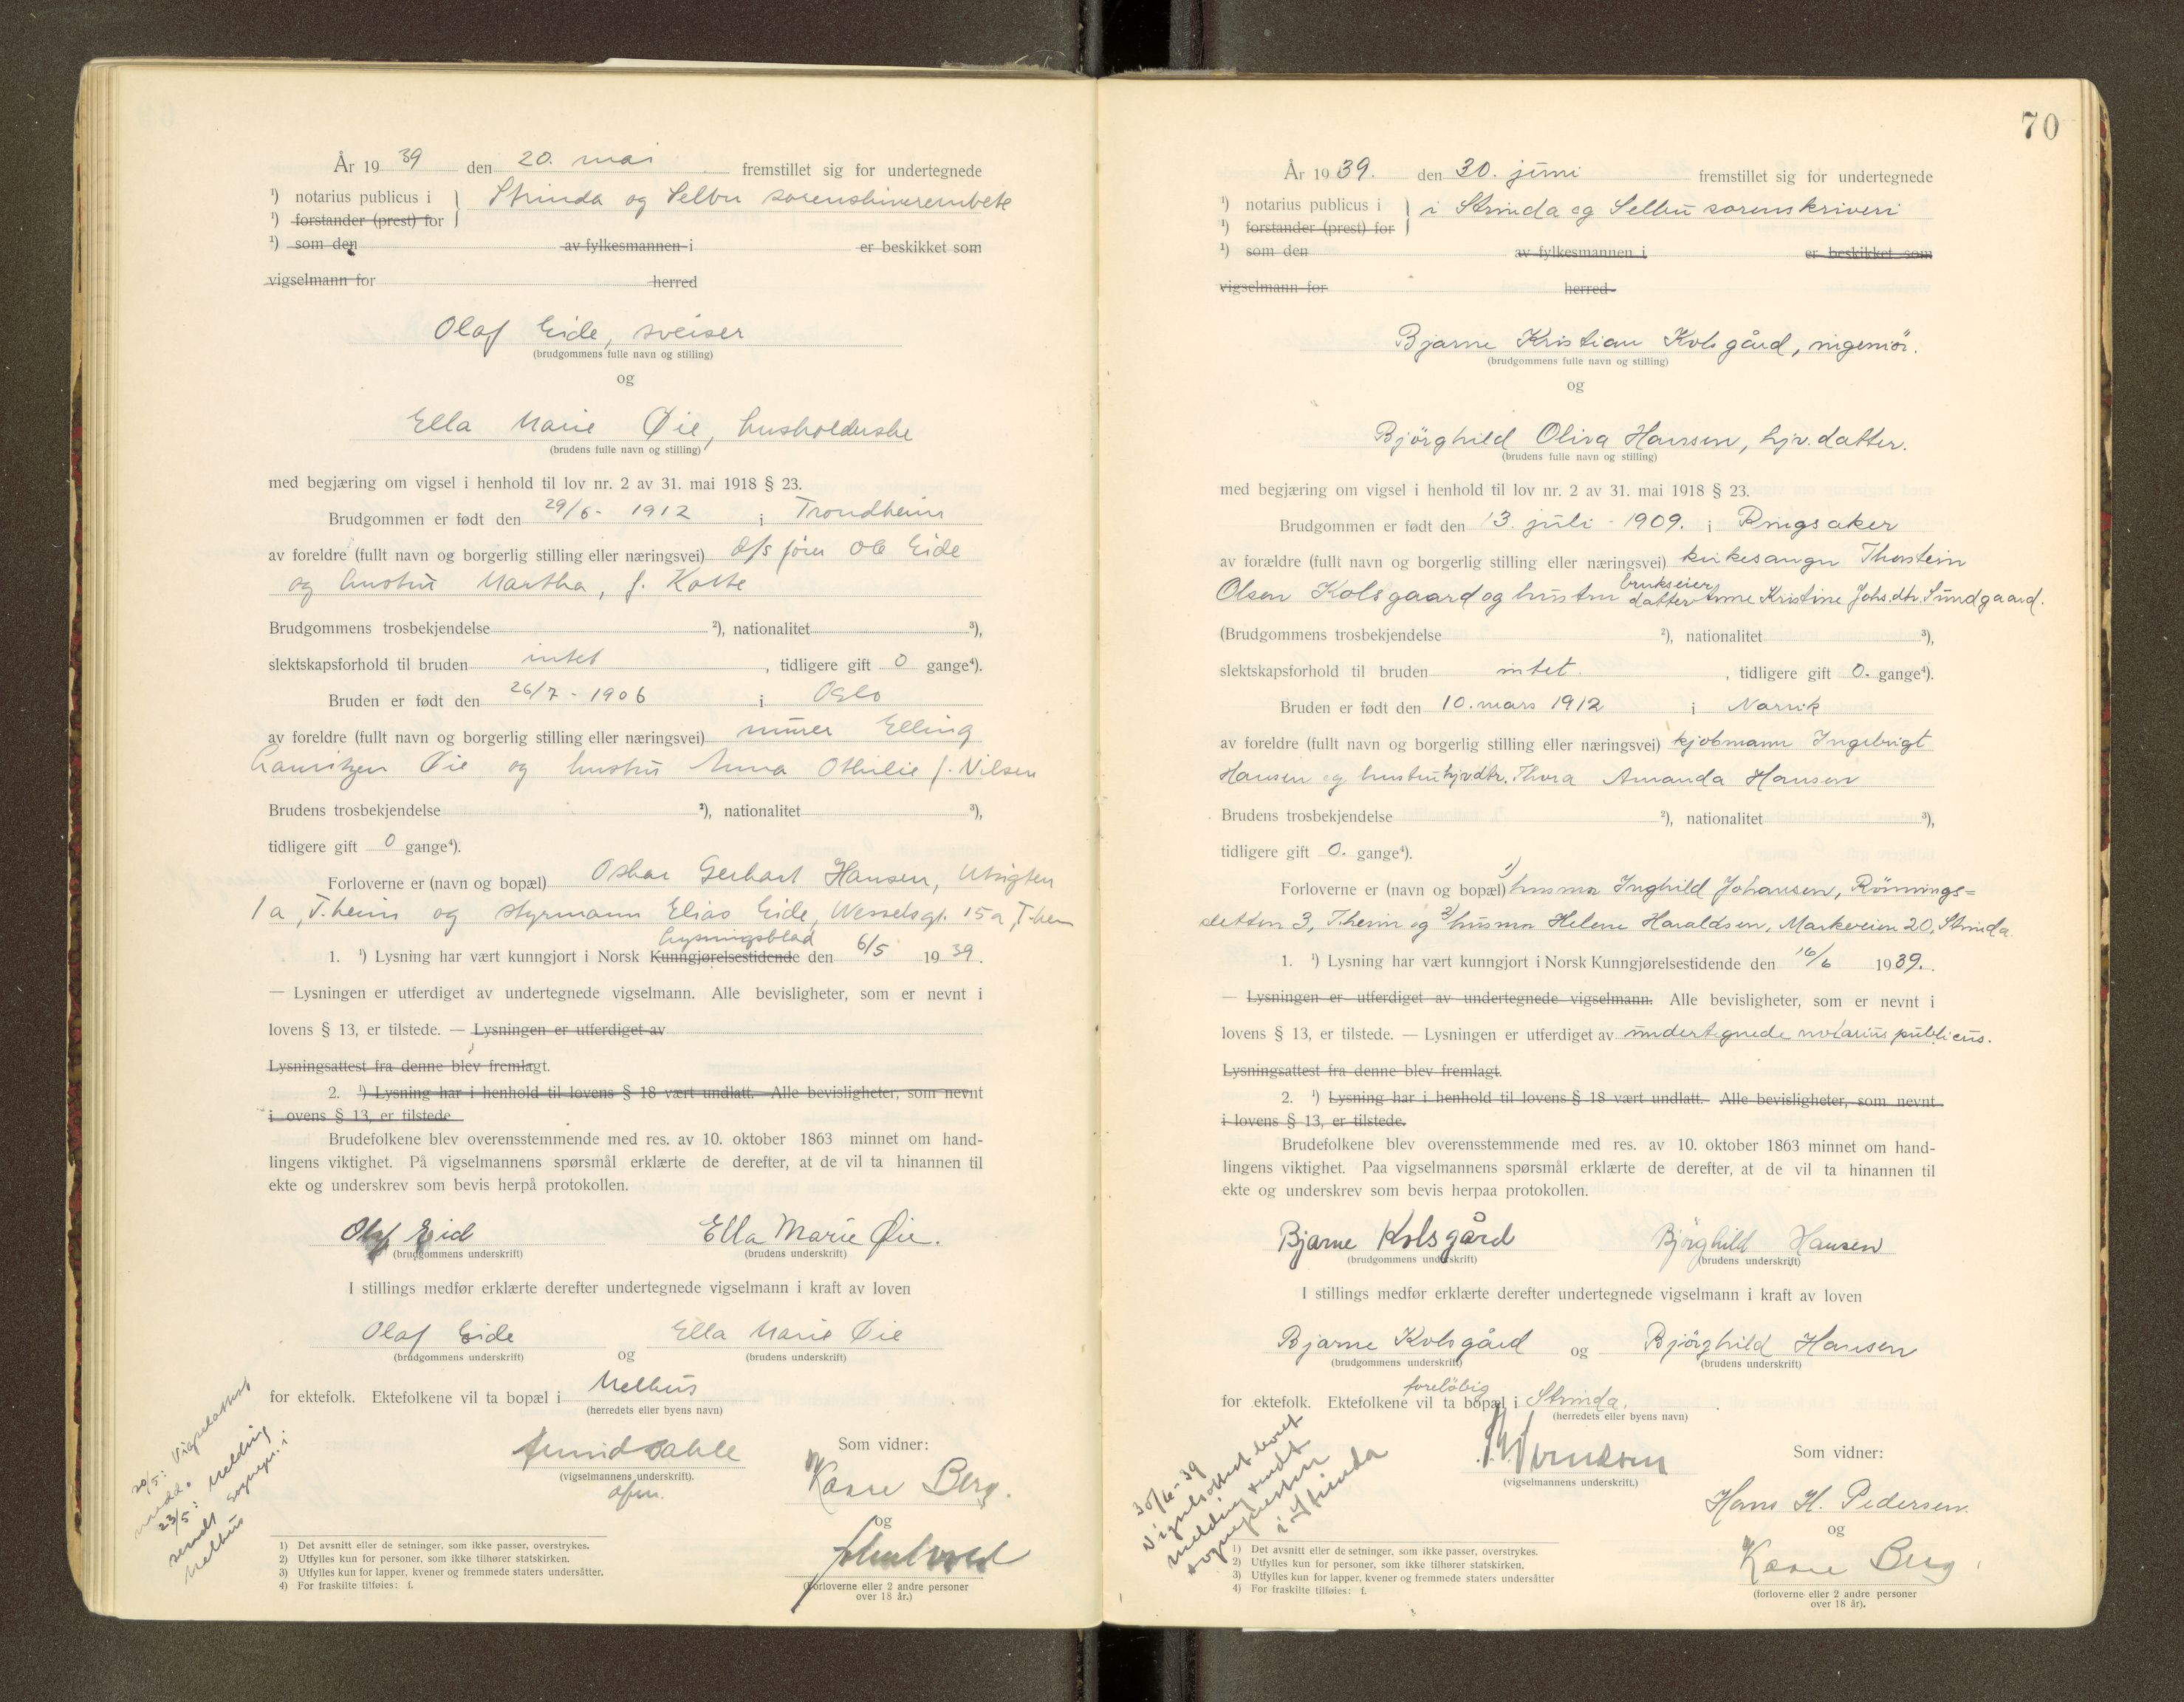 År 19 39 den 20. mai fremstillet sig for undertegnede
¹) notarius publicus i } Strinda og Selbu sorenskriverembete
¹) forstander (prest) for
¹) som den av fylkesmannen i er beskikket som
vigselmann for herred
Olaf Eide, sveiser
(brudgommens fulle navn og stilling)
og
Ella Marie Øie, husholderske
(brudens fulle navn og stilling)
med begjæring om vigsel i henhold til lov nr. 2 av 31. mai 1918 § 23.
Brudgommen er født den 29/6 - 1912 i Trondheim
av foreldre (fullt navn og borgerlig stilling eller næringsvei) d/s fører Ole Eide
og hustru Martha, f. Kotte
Brudgommens trosbekjendelse ²), nationalitet ³),
slektskapsforhold til bruden intet, tidligere gift 0 gange⁴).
Bruden er født den 26/7 - 1906 i Oslo
av foreldre (fullt navn og borgerlig stilling eller næringsvei) murer Elling
Lauritzen Øie og hustru Anna Othilie f. Nilsen
Brudens trosbekjendelse ²), nationalitet ³),
tidligere gift 0 gange⁴).
Forloverne er (navn og bopæl) Oskar Gerhart Hansen, Utsigten
1a, T.heim og styrmann Elias Eide, Wesselsgt. 15a, T.hem
lysningsblad
1. ¹) Lysning har vært kunngjort i Norsk Kunngjørelsestidende den 6/5 19 39.
— Lysningen er utferdiget av undertegnede vigselmann. Alle bevisligheter, som er nevnt i
lovens § 13, er tilstede. — Lysningen er utferdiget av
Lysningsattest fra denne blev fremlagt.
2. ¹) Lysning har i henhold til lovens § 18 vært undlatt. Alle bevisligheter, som nevnt
i ovens § 13, er tilstede
Brudefolkene blev overensstemmende med res. av 10. oktober 1863 minnet om hand-
lingens viktighet. På vigselmannens spørsmål erklærte de derefter, at de vil ta hinannen til
ekte og underskrev som bevis herpå protokollen.
Olaf Eid Ella Marie Øie.
(brudgommens underskrift) (brudens underskrift)
I stillings medfør erklærte derefter undertegnede vigselmann i kraft av loven
Olaf Eide og Ella Marie Øie
(brudgommens underskrift) (brudens underskrift)
for ektefolk. Ektefolkene vil ta bopæl i Melhus
(herredets eller byens navn)
20/5: Vigselattest
23/5: Melding
sendt sognepr. i
Melhus
(vigselmannens underskrift).
Som vidner:
Kaare Berg.
og
(Forloverne eller 2 andre personer
over 18 år.)
1) Det avsnitt eller de setninger, som ikke passer, overstrykes.
2) Utfylles kun for personer, som ikke tilhører statskirken.
3) Utfylles kun for lapper, kvener og fremmede staters undersåtter.
4) For fraskilte tilføies: f.
70
År 19 39. den 30. juni fremstillet sig for undertegnede
¹) notarius publicus i } i Strinda og Selbu sorenskriveri
¹) forstander (prest) for
¹) som den av fylkesmannen i er beskikket som
vigselmann for herred
Bjarne Kristian Kolsgård, ingeniör.
(brudgommens fulle navn og stilling)
og
Bjørghild Oliva Hansen, hjv. datter.
(brudens fulle navn og stilling)
med begjæring om vigsel i henhold til lov nr. 2 av 31. mai 1918 § 23.
Brudgommen er født den 13. juli - 1909. i Ringsaker
av forældre (fullt navn og borgerlig stilling eller næringsvei) kirkesanger Thorstein
Olsen Kolsgaard og hustru brukseierdatter Anne Kristine Johs.dtr. Sundgaard.
(Brudgommens trosbekjendelse ²), nationalitet ³),
slektskapsforhold til bruden intet., tidligere gift 0. gange⁴).
Bruden er født den 10. mars 1912 i Narvik
av foreldre (fullt navn og borgerlig stilling eller næringsvei) kjøbmann Ingebrigt
Hansen og hustru hjvdtr. Thora Amanda Hansen
Brudens trosbekjendelse ²), nationalitet ³),
tidligere gift 0. gange⁴).
Forloverne er (navn og bopæl) 1) husmor Inghild Johansen, Rønnings=
sletten 3, T.heim og 2) husmor Helene Haraldsen, Markveien 20, Strinda.
1. ¹) Lysning har vært kunngjort i Norsk Kunngjørelsestidende den 16/6 19 39.
— Lysningen er utferdiget av undertegnede vigselmann. Alle bevisligheter, som er nevnt i
lovens § 13, er tilstede. — Lysningen er utferdiget av undertegnede notarius publicus.
Lysningsattest fra denne blev fremlagt.
2. ¹) Lysning har i henhold til lovens § 18 vært undlatt. Alle bevisligheter, som nevnt
i lovens § 13, er tilstede.
Brudefolkene blev overensstemmende med res. av 10. oktober 1863 minnet om hand-
lingens viktighet. Paa vigselmannens spørsmål erklærte de derefter, at de vil ta hinannen til
ekte og underskrev som bevis herpaa protokollen.
Bjarne Kolsgård Bjørghild Hansen
(brudgommens underskrift) (brudens underskrift)
I stillings medfør erklærte derefter undertegnede vigselmann i kraft av loven
Bjarne Kolsgård og Bjørghild Hansen
(brudgommens underskrift) (brudens underskrift)
foreløbig
for ektefolk. Ektefolkene vil ta bopæl i Strinda.
(herredets eller byens navn)
30/6-39
Vigselsattest
melding sendt
sognepresten
i Strinda
(vigselmannens underskrift.)
Som vidner:
Hans H. Pedersen.
og
Kaare Berg
(forloverne eller 2 andre personer
over 18 år).
1) Det avsnitt eller de setninger, som ikke passer, overstrykes.
2) Utfylles kun for personer, som ikke tilhører statskirken.
3) Utfylles kun for lapper, kvener og fremmede staters undersåtter
4) For fraskilte tilføies: f.